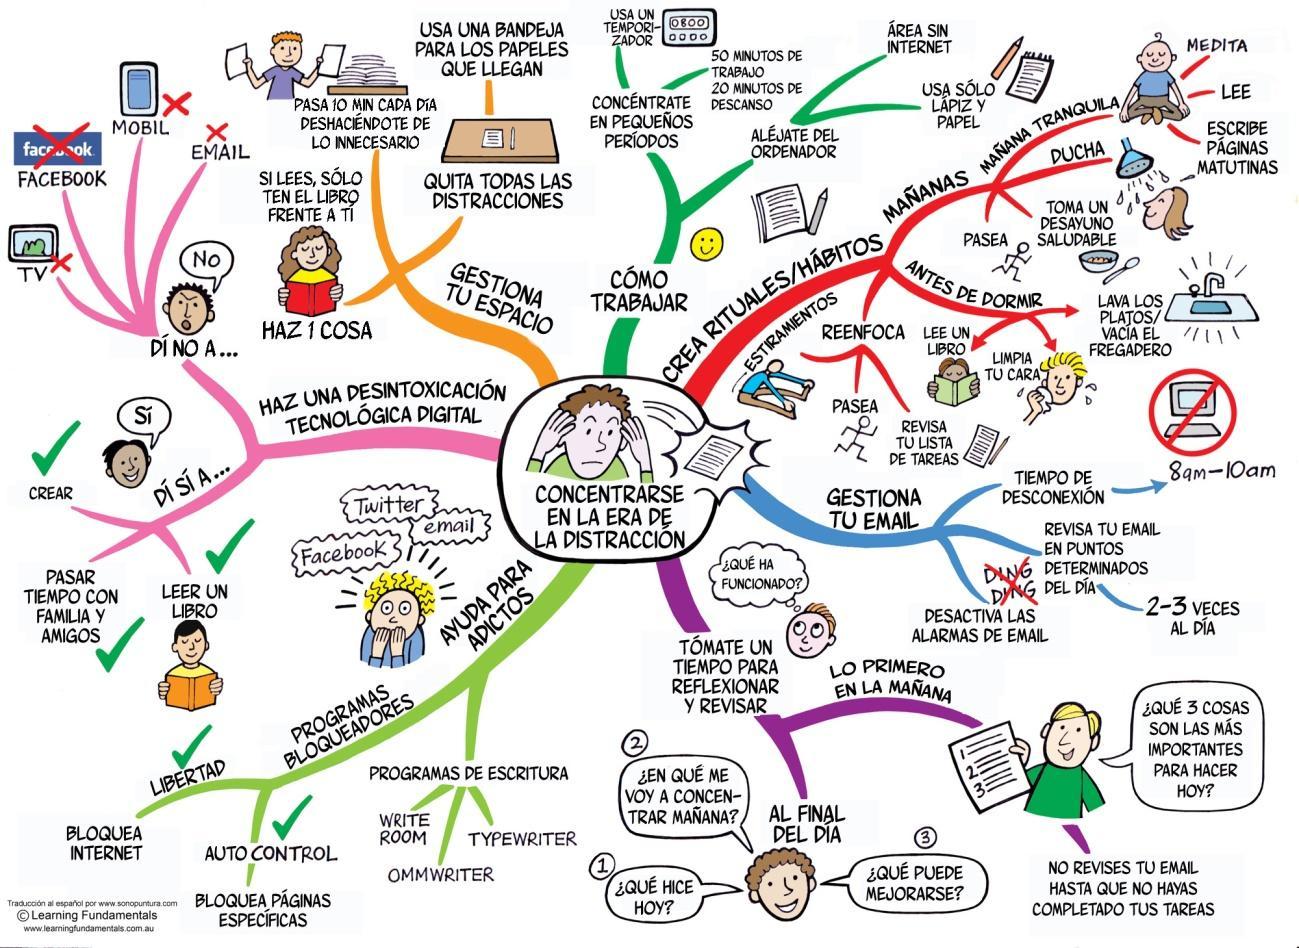 CONCENTRARSE
EN LA ERA DE
LA DISTRACCIÓN
CÓMO
TRABAJAR
CONCÉNTRATE
EN PEQUEÑOS
PERÍODOS
USA UN
TEMPORI-
ZADOR
0800
50 MINUTOS DE
TRABAJO
20 MINUTOS DE
DESCANSO
ALÉJATE DEL
ORDENADOR
ÁREA SIN
INTERNET
USA SÓLO
LÁPIZ Y
PAPEL
CREA RITUALES/HÁBITOS
MAÑANAS
MAÑANA TRANQUILA
MEDITA
LEE
ESCRIBE
PÁGINAS
MATUTINAS
DUCHA
TOMA UN
DESAYUNO
SALUDABLE
PASEA
ANTES DE DORMIR
LAVA LOS
PLATOS/
VACÍA EL
FREGADERO
LEE UN
LIBRO
LIMPIA
TU CARA
REENFOCA
ESTIRAMIENTOS
PASEA
REVISA
TU LISTA
DE TAREAS
GESTIONA
TU EMAIL
TIEMPO DE
DESCONEXIÓN
8am-10am
REVISA TU EMAIL
EN PUNTOS
DETERMINADOS
DEL DÍA
2-3 VECES
AL DÍA
DING
DING
DESACTIVA LAS
ALARMAS DE EMAIL
TÓMATE UN
TIEMPO PARA
REFLEXIONAR
Y REVISAR
¿QUÉ HA
FUNCIONADO?
LO PRIMERO
EN LA MAÑANA
1
2
3
¿QUÉ 3 COSAS
SON LAS MÁS
IMPORTANTES
PARA HACER
HOY?
NO REVISES TU EMAIL
HASTA QUE NO HAYAS
COMPLETADO TUS TAREAS
AL FINAL
DEL DÍA
1
¿QUÉ HICE
HOY?
2
¿EN QUÉ ME
VOY A CONCEN-
TRAR MAÑANA?
3
¿QUÉ PUEDE
MEJORARSE?
AYUDA PARA
ADICTOS
Twitter
email
Facebook
PROGRAMAS DE ESCRITURA
WRITE
ROOM
OMMWRITER
TYPEWRITER
PROGRAMAS
BLOQUEADORES
LIBERTAD
BLOQUEA
INTERNET
AUTO CONTROL
BLOQUEA PÁGINAS
ESPECÍFICAS
HAZ UNA DESINTOXICACIÓN
TECNOLÓGICA DIGITAL
DÍ SÍ A...
Sí
CREAR
PASAR
TIEMPO CON
FAMILIA Y
AMIGOS
LEER UN
LIBRO
DÍ NO A...
No
TV
facebook
FACEBOOK
MOBIL
EMAIL
GESTIONA
TU ESPACIO
HAZ 1 COSA
SI LEES, SÓLO
TEN EL LIBRO
FRENTE A TÍ
PASA 10 MIN CADA DÍA
DESHACIÉNDOTE DE
LO INNECESARIO
QUITA TODAS LAS
DISTRACCIONES
USA UNA BANDEJA
PARA LOS PAPELES
QUE LLEGAN
Traducción al español por www.sonopuntura.com
© Learning Fundamentals
www.learningfundamentals.com.au